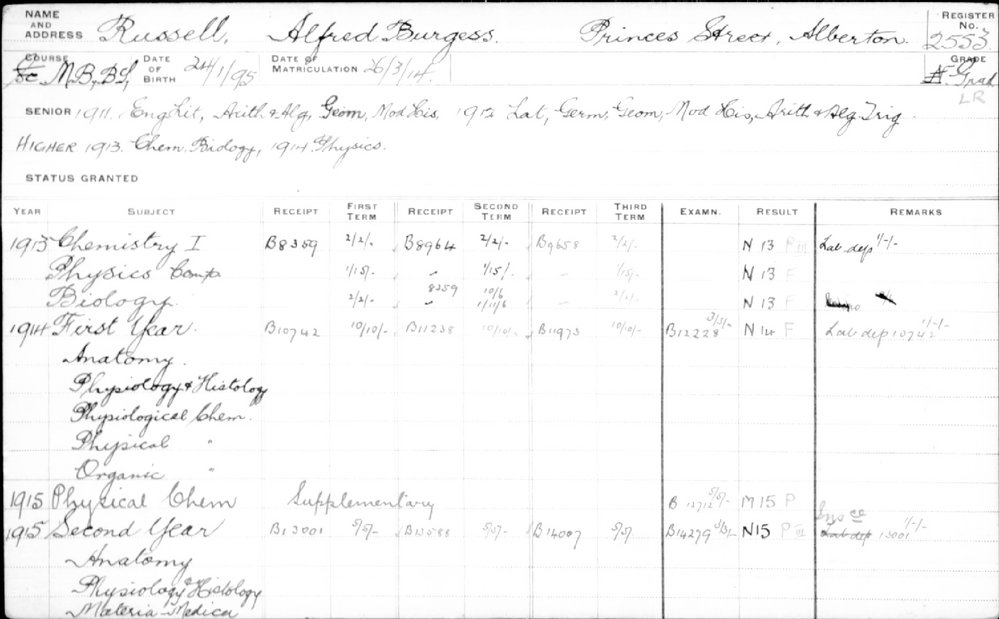 NAME AND ADDRESS Russell, Alfred Burgess. Princes Street, Alberton. REGISTER No. 2553
COURSE Sc M.B., B.S. DATE OF BIRTH 24/1/95 DATE OF MATRICULATION 26/3/14. GRADE Grad
LR
SENIOR 1911. Eng Lit, Arith & Alg, Geom, Mod His, 1912 Lat, Germ, Geom, Mod His, Arith & Alg Trig.
HIGHER 1913. Chem. Biology, 1914 Physics.
STATUS GRANTED
YEAR SUBJECT RECEIPT FIRST TERM RECEIPT SECOND TERM RECEIPT THIRD TERM EXAMN. RESULT REMARKS
1913 Chemistry I B8359 2/2/- B8964 2/2/- B9658 2/2/- N 13 P III Lab dep 1/-/-
Physics Comp 1/15/- " 1/15/- " 1/15/- N 13 F
Biology. 2/2/- " 8359 10/6 1/11/6 " 2/2/- N 13 F
1914 First Year. B10742 10/10/- B11238 10/10/- B11973 10/10/- B12228 3/3/- N 14 F Lab dep 10742 1/-/-
Anatomy.
Physiology & Histology
Physiological Chem.
Physical "
Organic "
1915 Physical Chem Supplementary B12712 5/5/- M15 P
1915 Second Year B13001 5/5/- B13588 5/5/- B14007 5/5/- B14279 3/3/- N15 P III Lab dep 13001 1/-/-
Anatomy
Physiology & Histology
Materia Medica